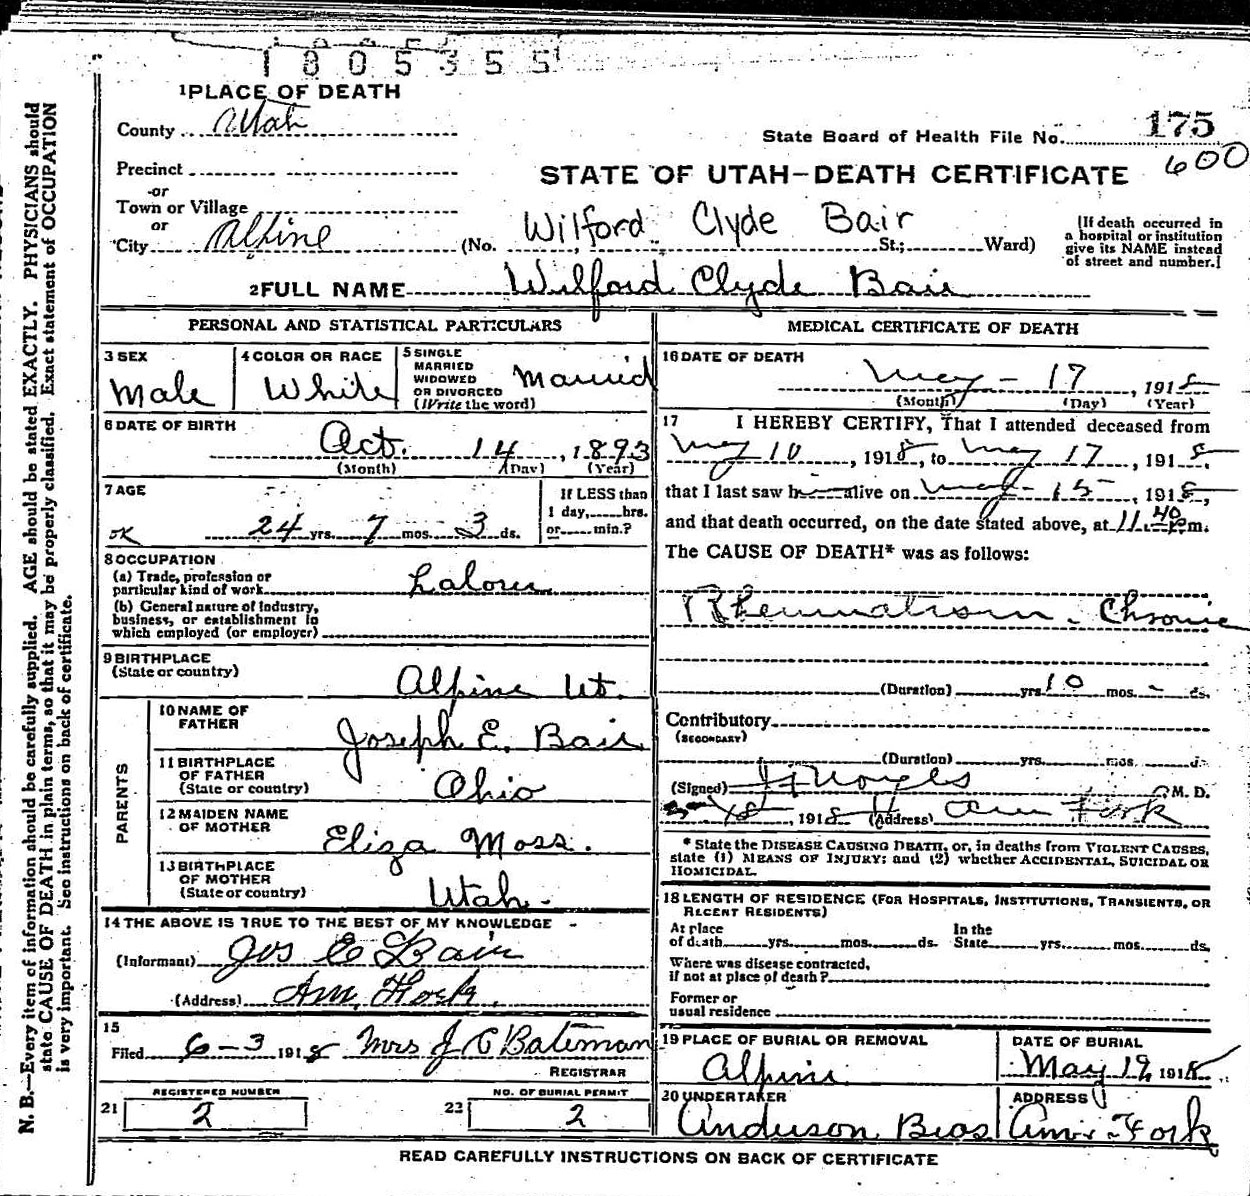 1805355
1 PLACE OF DEATH
County Utah
State Board of Health File No. 175
600
Precinct
STATE OF UTAH—DEATH CERTIFICATE
or
Town or Village
or
City Alpine (No. Wilford Clyde Bair St.; Ward)
[If death occurred in
a hospital or institution
give its NAME instead
of street and number.]
2 FULL NAME Wilford Clyde Bair
PERSONAL AND STATISTICAL PARTICULARS
3 SEX
Male
4 COLOR OR RACE
White
5 SINGLE
MARRIED
WIDOWED
OR DIVORCED
(Write the word)
Married
6 DATE OF BIRTH
Oct. 14, 1893
(Month) (Day) (Year)
7 AGE
OK 24 yrs. 7 mos. 3 ds.
If LESS than
1 day, hrs.
or min.?
8 OCCUPATION
(a) Trade, profession or
particular kind of work Laborer
(b) General nature of Industry,
business, or establishment in
which employed (or employer)
9 BIRTHPLACE
(State or country)
Alpine Ut.
PARENTS
10 NAME OF
FATHER
Joseph E. Bair
11 BIRTHPLACE
OF FATHER
(State or country)
Ohio
12 MAIDEN NAME
OF MOTHER
Eliza Moss.
13 BIRTHPLACE
OF MOTHER
(State or country)
Utah.
14 THE ABOVE IS TRUE TO THE BEST OF MY KNOWLEDGE
(Informant) Jos E Bair
(Address) Am. Fork.
15
Filed 6-3 1918 Mrs J C Bateman
REGISTRAR
REGISTERED NUMBER
21 2
NO. OF BURIAL PERMIT
22 2
MEDICAL CERTIFICATE OF DEATH
16 DATE OF DEATH
May - 17, 1918
(Month) (Day) (Year)
17 I HEREBY CERTIFY, That I attended deceased from
May 10, 1918, to May 17, 1918,
that I last saw h alive on May - 15, 1918,
and that death occurred, on the date stated above, at 11.40 p.m.
The CAUSE OF DEATH* was as follows:
Rheumatism - Chronic
(Duration) yrs 10 mos. - ds.
Contributory
(SECONDARY)
(Duration) yrs. mos. d.
(Signed) M. D.
5-18, 1918 (Address) Am Fork
* State the DISEASE CAUSING DEATH, or, in deaths from VIOLENT CAUSES,
state (1) MEANS OF INJURY; and (2) whether ACCIDENTAL, SUICIDAL OR
HOMICIDAL.
18 LENGTH OF RESIDENCE (FOR HOSPITALS, INSTITUTIONS, TRANSIENTS, OR
RECENT RESIDENTS)
At place
of death yrs. mos. ds.
In the
State yrs. mos. ds.
Where was disease contracted,
if not at place of death?
Former or
usual residence
19 PLACE OF BURIAL OR REMOVAL
Alpine
DATE OF BURIAL
May 19, 1918
20 UNDERTAKER
Anderson Bros
ADDRESS
Am. Fork
READ CAREFULLY INSTRUCTIONS ON BACK OF CERTIFICATE
N. B.—Every item of information should be carefully supplied. AGE should be stated EXACTLY. PHYSICIANS should
state CAUSE OF DEATH in plain terms, so that it may be properly classified. Exact statement of OCCUPATION
is very important. See instructions on back of certificate.